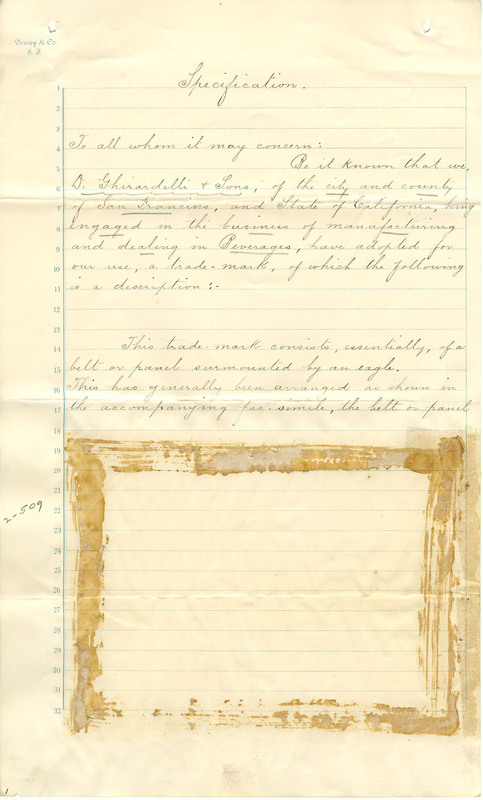 Dewey & Co.
S. F.
Specification.
1
2
3
4 To all whom it may concern:
5 Be it known that we,
6 D. Ghirardelli & Sons, of the city and county
7 of San Francisco, and State of California, being
8 engaged in the business of manufacturing
9 and dealing in Beverages, have adopted for
10 our use, a trade-mark, of which the following
11 is a description:-
12
13
14 This trade-mark consists, essentially, of a
15 belt or panel surmounted by an eagle.
16 This has generally been arranged as shown in
17 the accompanying fac-simile, the belt or panel
18
19
20
21
2-509
22
23
24
25
26
27
28
29
30
31
32
1